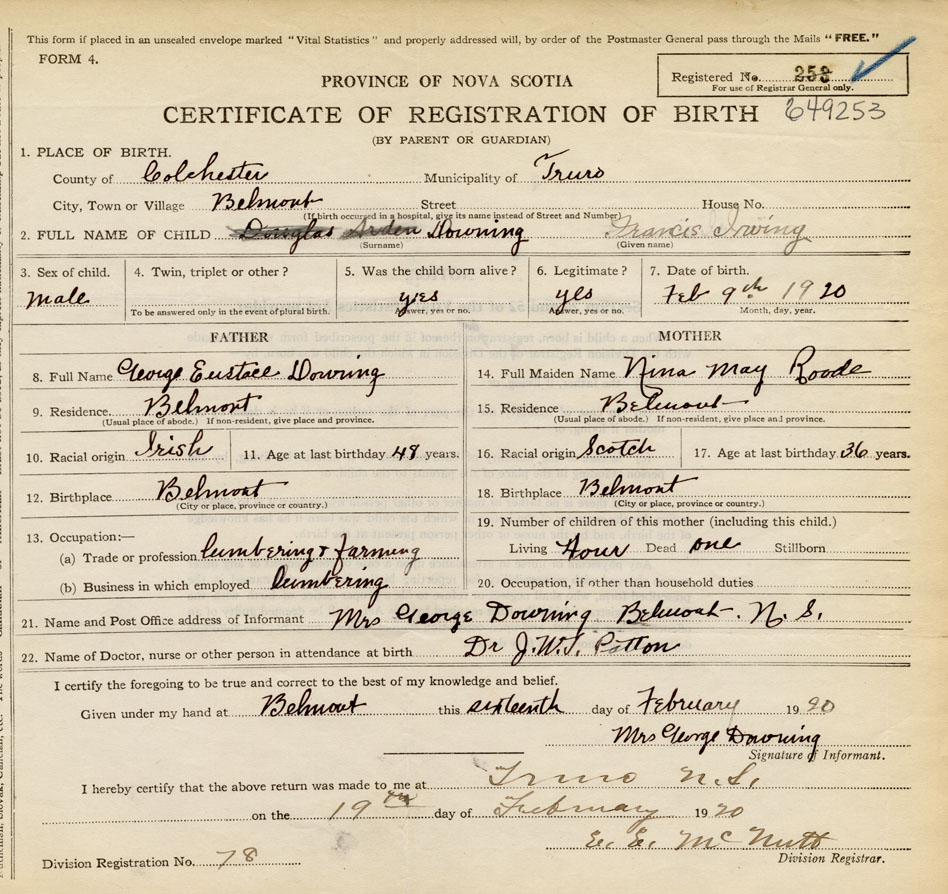 This form if placed in an unsealed envelope marked "Vital Statistics" and properly addressed will, by order of the Postmaster General pass through the Mails "FREE."
FORM 4.
PROVINCE OF NOVA SCOTIA
Registered No. 253
For use of Registrar General only.
CERTIFICATE OF REGISTRATION OF BIRTH 649253
(BY PARENT OR GUARDIAN)
1. PLACE OF BIRTH.
County of Colchester Municipality of Truro
City, Town or Village Belmont Street House No.
(If birth occurred in a hospital, give its name instead of Street and Number)
2. FULL NAME OF CHILD Douglas Arden Downing Francis Irving
(Surname) (Given name)
3. Sex of child. 4. Twin, triplet or other? 5. Was the child born alive? 6. Legitimate? 7. Date of birth.
male yes yes Feb 9th 1920
To be answered only in the event of plural birth. Answer, yes or no. Answer, yes or no. Month, day, year.
FATHER MOTHER
8. Full Name George Eustace Downing 14. Full Maiden Name Nina May Roode
9. Residence Belmont 15. Residence Belmont
(Usual place of abode.) If non-resident, give place and province. (Usual place of abode.) If non-resident, give place and province.
10. Racial origin Irish 11. Age at last birthday 48 years. 16. Racial origin Scotch 17. Age at last birthday 36 years.
12. Birthplace Belmont 18. Birthplace Belmont
(City or place, province or country.) (City or place, province or country.)
13. Occupation:— 19. Number of children of this mother (including this child.)
(a) Trade or profession lumbering & farming Living Four Dead one Stillborn
(b) Business in which employed lumbering 20. Occupation, if other than household duties
21. Name and Post Office address of Informant Mrs George Downing Belmont. N. S.
22. Name of Doctor, nurse or other person in attendance at birth Dr J.W.S. Patton
I certify the foregoing to be true and correct to the best of my knowledge and belief.
Given under my hand at Belmont this sixteenth day of February 1920
Mrs George Downing
Signature of Informant.
I hereby certify that the above return was made to me at Truro N.S.
on the 19th day of February 1920
E. E. McNutt
Division Registration No. 78 Division Registrar.